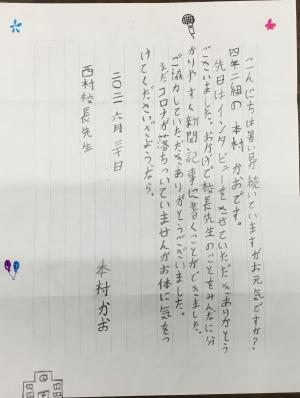 こんにちは暑い日が続いていますがお元気ですか？
四年二組の 本村 かおです。
先日はインタビューをさせていただきありがとう
ございました。おかげで校長先生のことをみんなに分
かりやすく新聞記事に書くことができました。
ご協力していただきありがとうございました。
まだコロナが落ちついていませんがお体に気をつ
けてください。さようなら。
二〇二一 六月 三十日
本村かお
西村校長先生